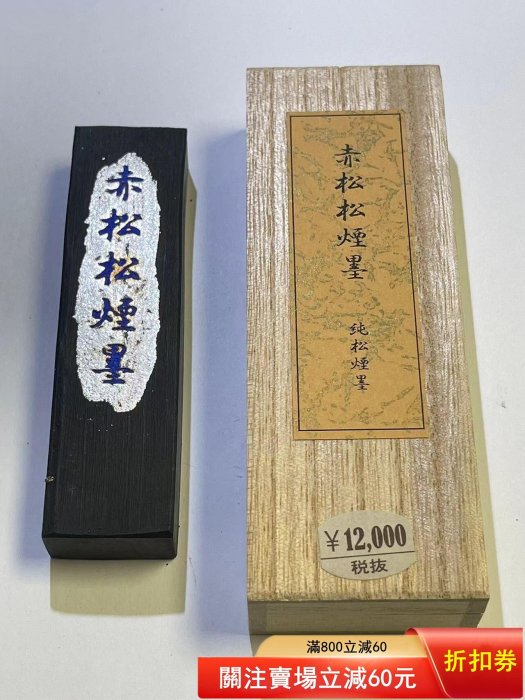 赤松松煙墨
赤松松煙墨
純松煙墨
¥12,000
税抜
滿800立減60
關注賣場立減60元
折扣券